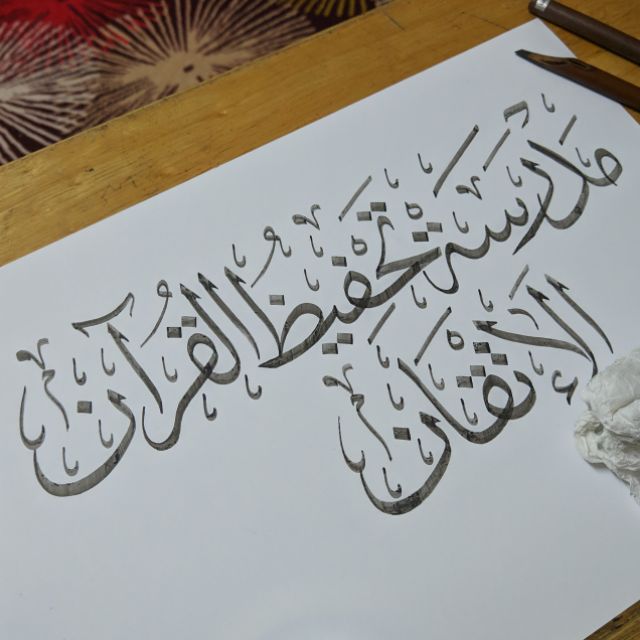 مدرسة تحفيظ القرآن
الإتقان